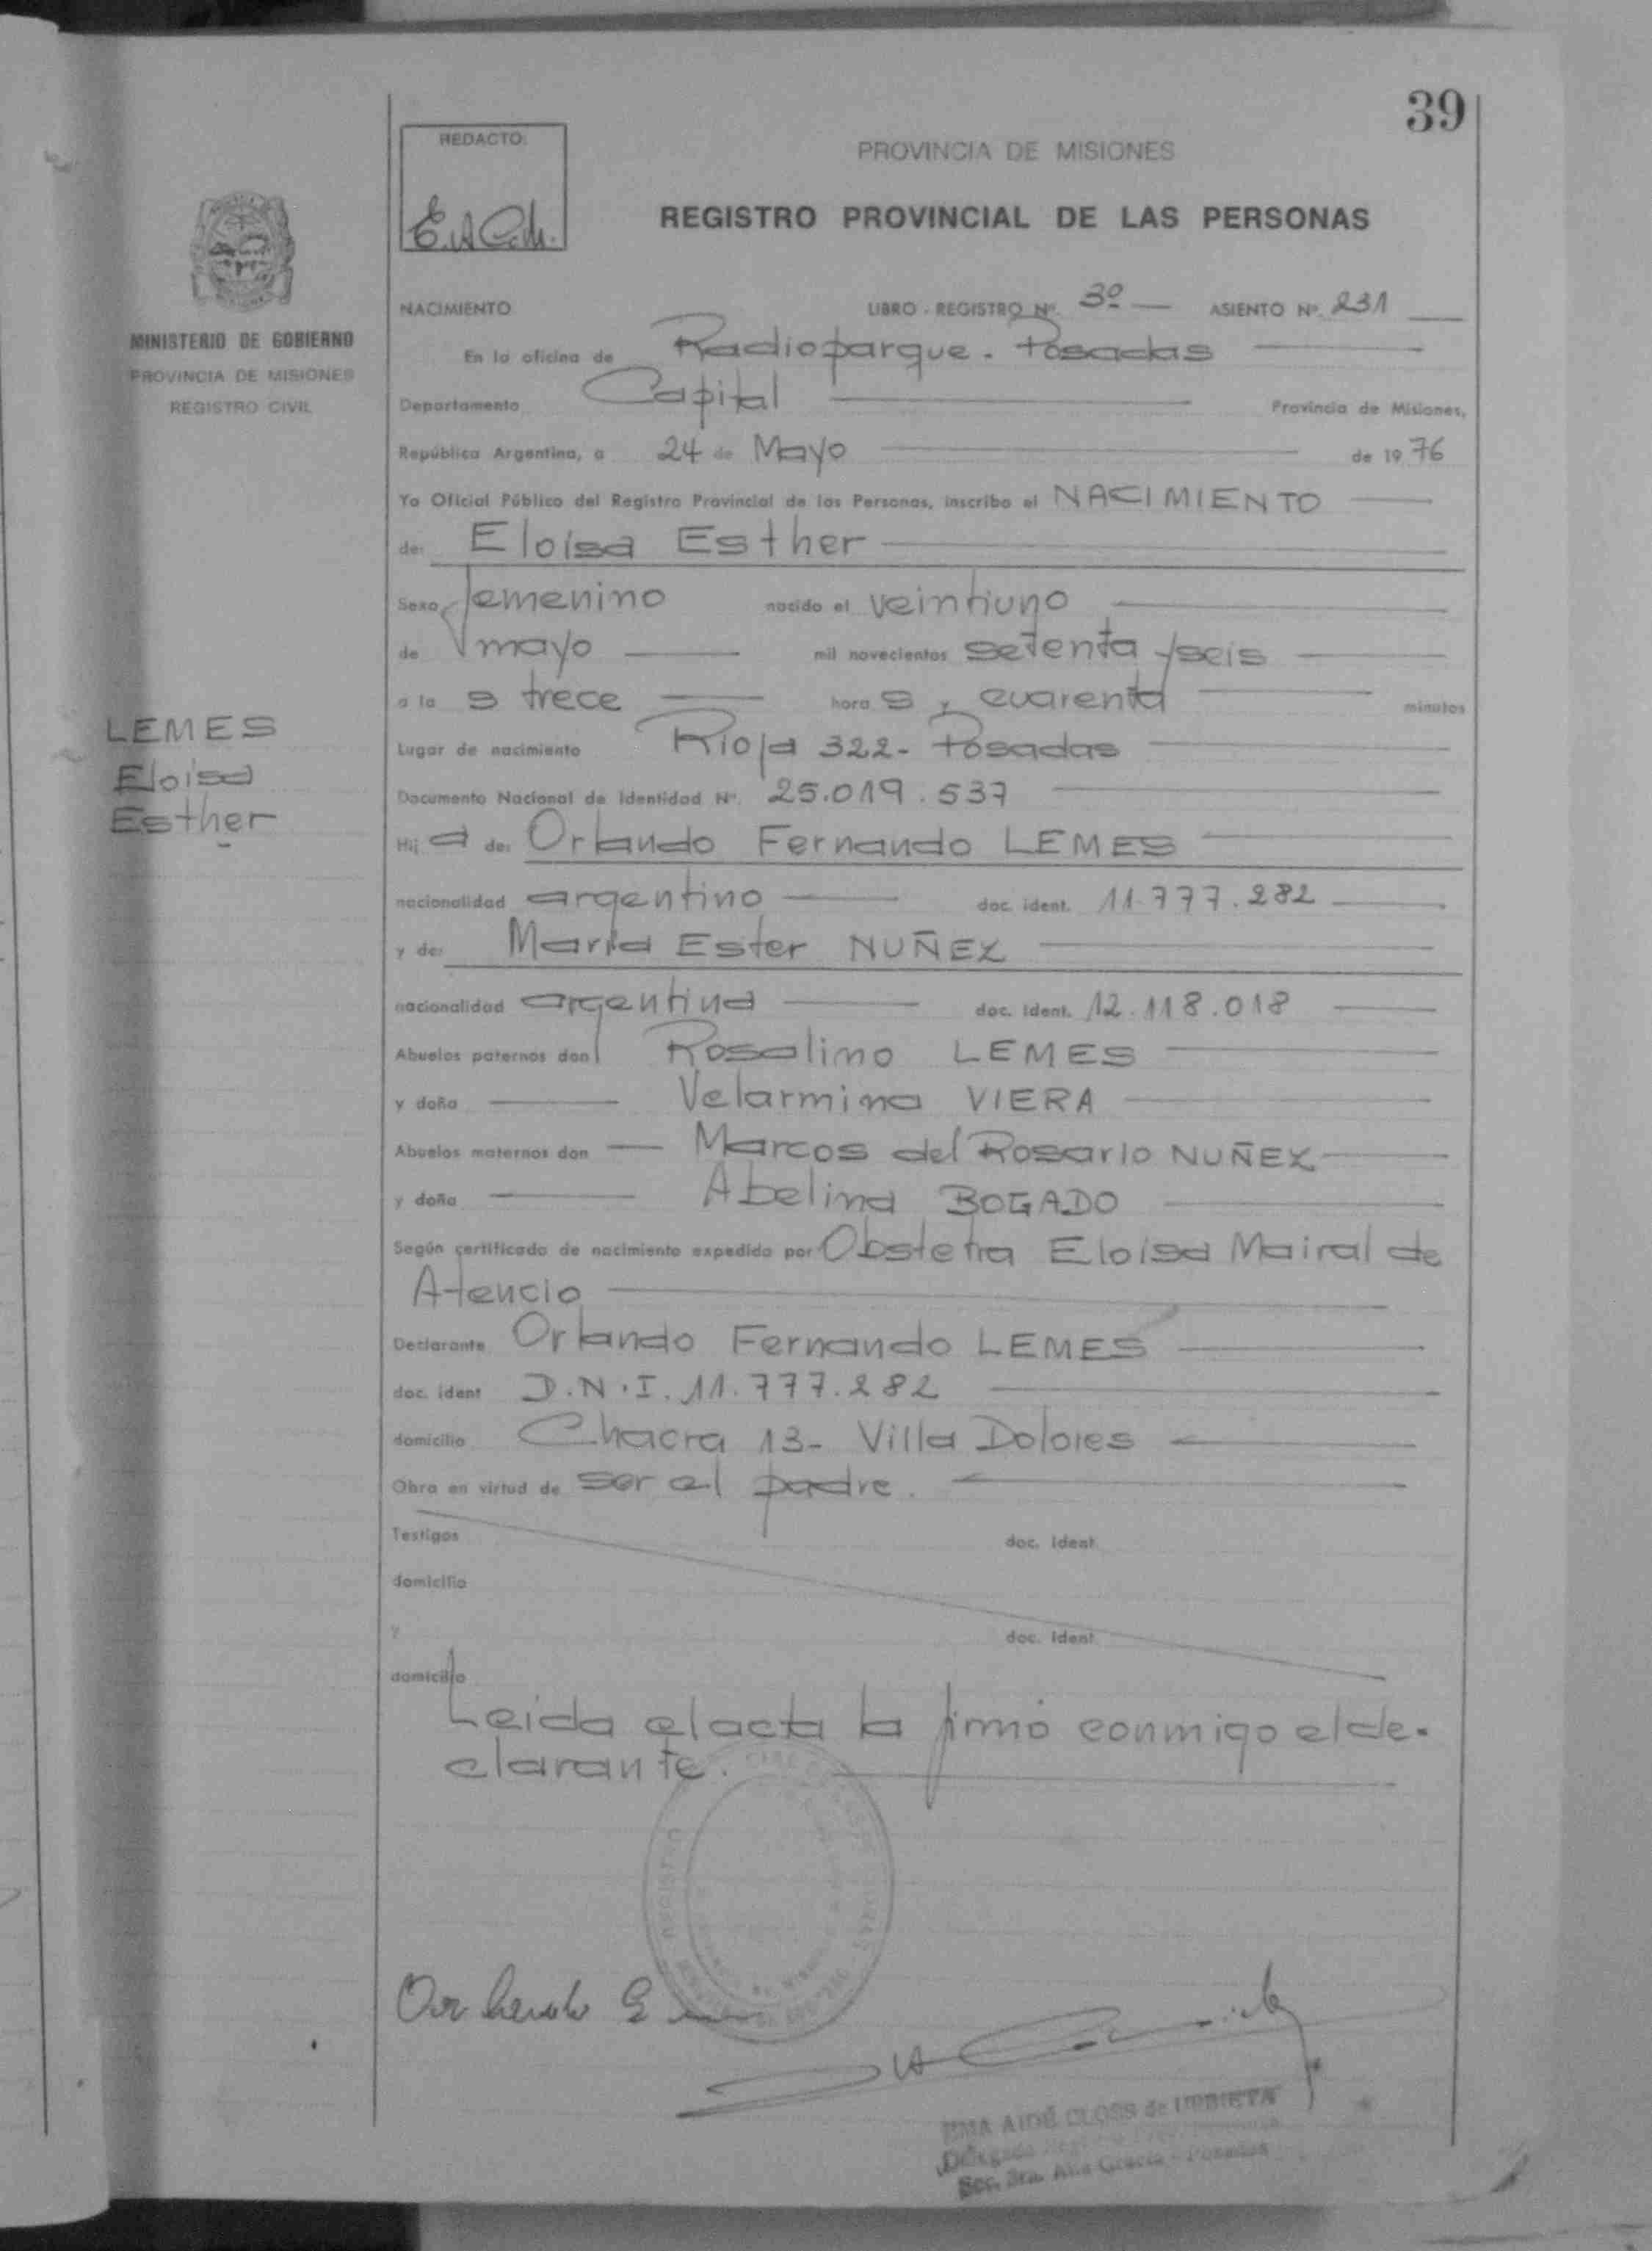 39
REDACTO:
E.A.C.h.
PROVINCIA DE MISIONES
REGISTRO PROVINCIAL DE LAS PERSONAS
MINISTERIO DE GOBIERNO
PROVINCIA DE MISIONES
REGISTRO CIVIL
NACIMIENTO LIBRO - REGISTRO Nº. 3º ASIENTO Nº. 231
En la oficina de Radioparque - Posadas
Departamento Capital Provincia de Misiones,
República Argentina, a 24 de Mayo de 1976
Yo Oficial Público del Registro Provincial de las Personas, inscribo el NACIMIENTO
de: Eloisa Esther
Sexo femenino nacido el veintiuno
de mayo mil novecientos setenta y seis
a la s trece hora s y cuarenta minutos
Lugar de nacimiento Rioja 322 - Posadas
Documento Nacional de Identidad Nº. 25.019.537
LEMES
Eloisa
Esther
Hij a de: Orlando Fernando LEMES
nacionalidad argentino doc. ident. 11.777.282
y de: María Ester NUÑEZ
nacionalidad argentina doc. ident. 12.118.018
Abuelos paternos don Rosalino LEMES
y doña Velarmina VIERA
Abuelos maternos don Marcos del Rosario NUÑEZ
y doña Abelina BOGADO
Según certificado de nacimiento expedido por Obstetra Eloisa Mairal de
Atencio
Declarante Orlando Fernando LEMES
doc. ident D.N.I. 11.777.282
domicilio Chacra 13 - Villa Dolores
Obra en virtud de ser el padre.
Testigos doc. ident
domicilio
y doc. ident
domicilio
Leida el acta la firmó conmigo el de-
clarante.
AIDÉ CLOSS de URRIETA
Delegada
Sec. 3ra. Alta Gracia - Posadas